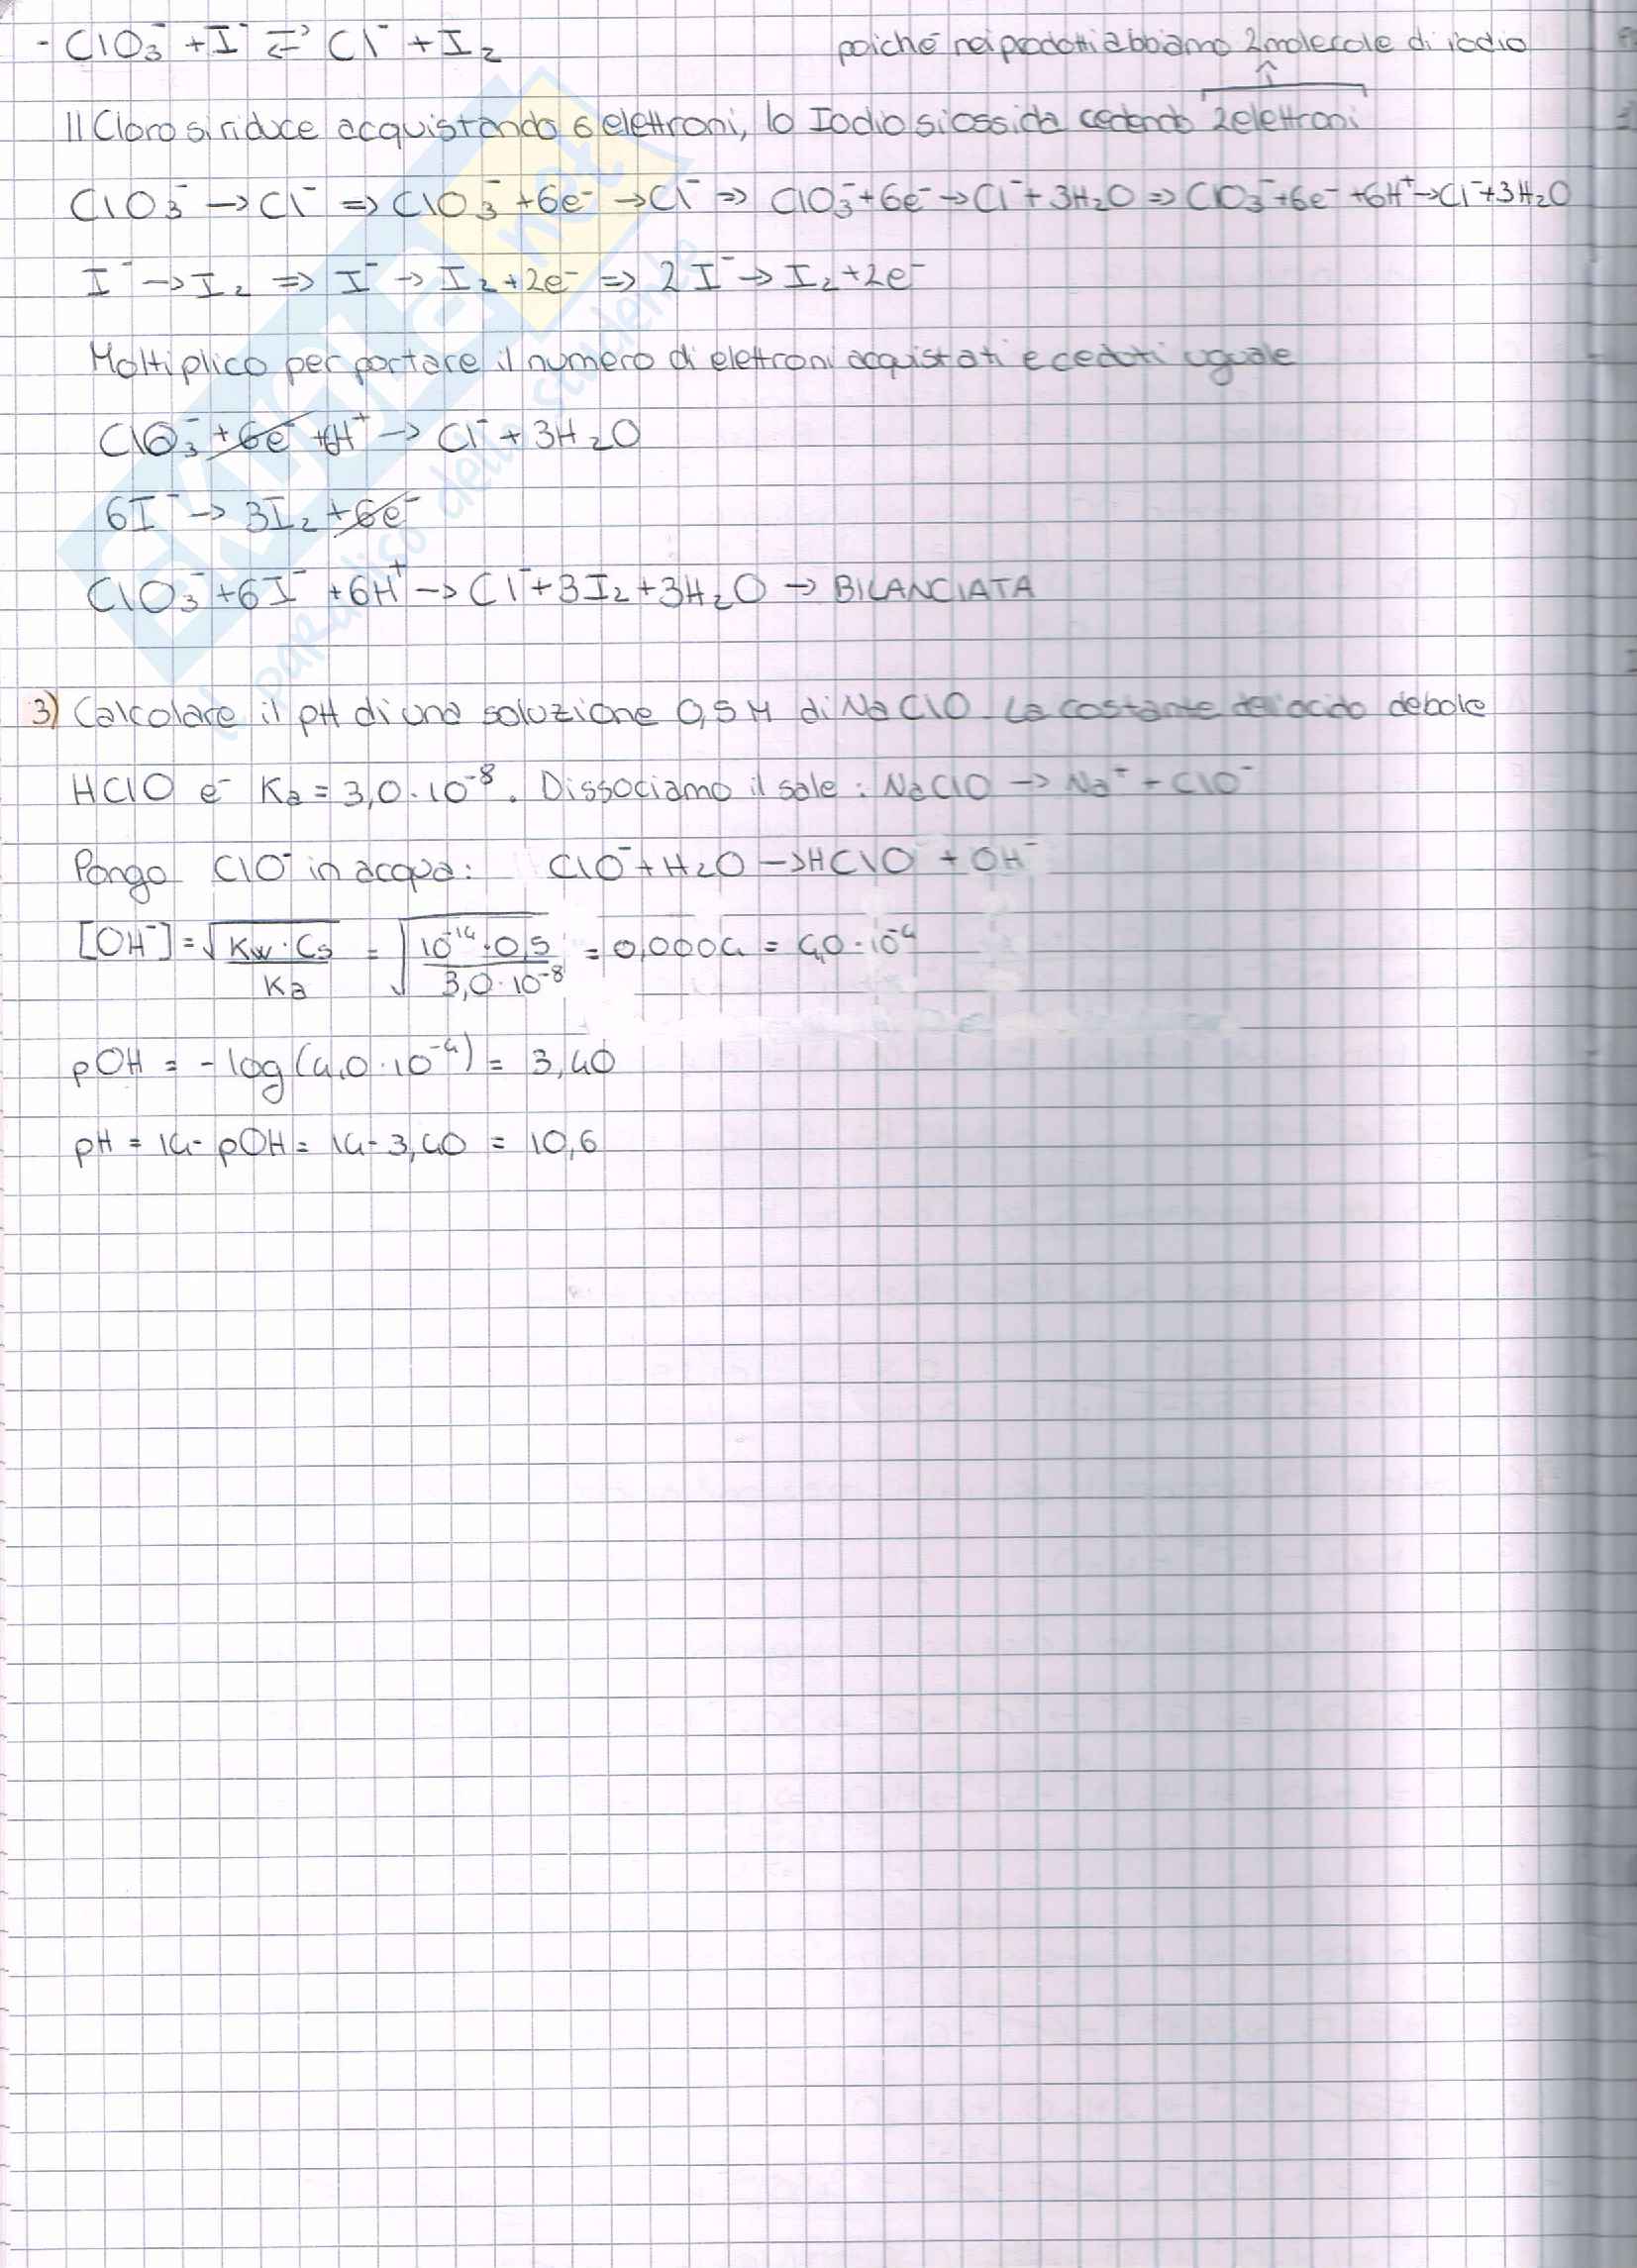 - ClO₃⁻ + I⁻ ⇄ Cl⁻ + I₂ poiché nei prodotti abbiamo 2 molecole di iodio
Il Cloro si riduce acquistando 6 elettroni, lo Iodio si ossida cedendo 2 elettroni
ClO₃⁻ → Cl⁻ ⇒ ClO₃⁻ + 6e⁻ → Cl⁻ ⇒ ClO₃⁻ + 6e⁻ → Cl⁻ + 3H₂O ⇒ ClO₃⁻ + 6e⁻ + 6H⁺ → Cl⁻ + 3H₂O
I⁻ → I₂ ⇒ I⁻ → I₂ + 2e⁻ ⇒ 2I⁻ → I₂ + 2e⁻
Moltiplico per portare il numero di elettroni acquistati e ceduti uguale
ClO₃⁻ + 6e⁻ + 6H⁺ → Cl⁻ + 3H₂O
6I⁻ → 3I₂ + 6e⁻
ClO₃⁻ + 6I⁻ + 6H⁺ → Cl⁻ + 3I₂ + 3H₂O → BILANCIATA
3) Calcolare il pH di una soluzione 0,5 M di NaClO. La costante dell'acido debole
HClO è Ka = 3,0·10⁻⁸. Dissociamo il sale: NaClO → Na⁺ + ClO⁻
Pongo ClO⁻ in acqua: ClO⁻ + H₂O → HClO + OH⁻
[OH⁻] = √(Kw·Cs / Ka) = √(10⁻¹⁴·0,5 / 3,0·10⁻⁸) = 0,0004 = 4,0·10⁻⁴
pOH = -log(4,0·10⁻⁴) = 3,40
pH = 14 - pOH = 14 - 3,40 = 10,6
SKUOLA.net
il paradiso dello studente